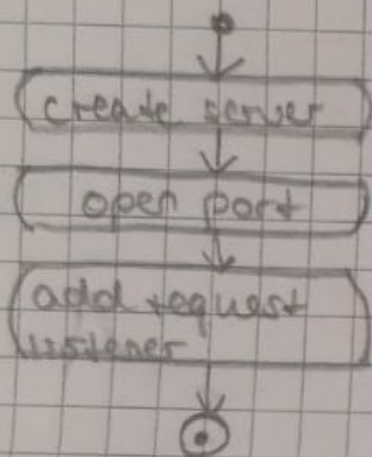 create server
open port
add request
listener